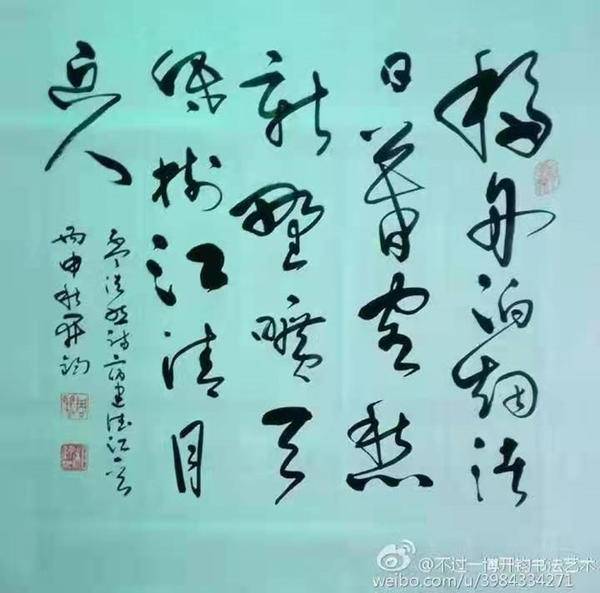 移舟泊烟渚
日暮客愁
新野曠天
低树江清月
近人
孟浩然诗宿建德江一首
丙申秋开钧
@不过一博开钧书法艺术
weibo.com/u/3984334271